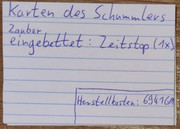 Karten des Schummlers
Zauber
eingebettet: Zeitstop (1x)
Herstellkosten: 6941GM